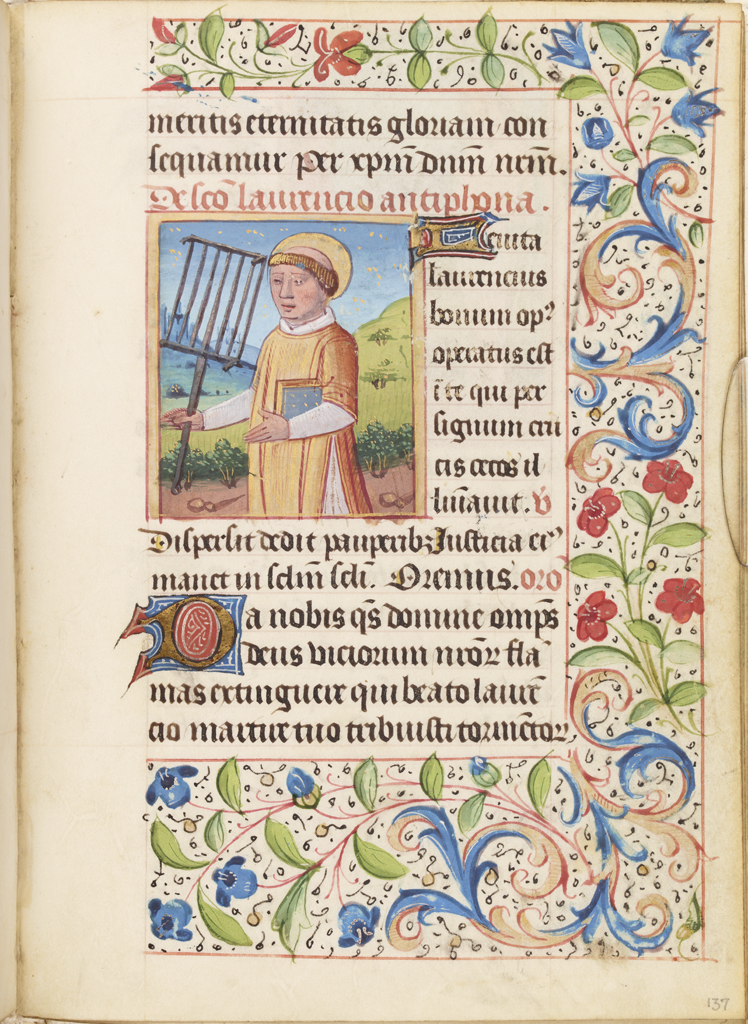 meritis eternitatis gloriam con
sequamur per xpm̄ dnm̄ nrm̄.
De sco᷃ laurencio antiphona.
Leuita
laurencius
bonum opꝰ
operatus est
īte qui per
signum cru
cis cecos il
lūīauit. v̄
Dispersit dedit pauperibꝫ Iusticia eiꝰ
manet in sclm̄ scli. Oremus. oro
Da nobis qs̄ domine omps̄
deus viciorum nrōꝝ fla
mas extinguere qui beato laurē
cio martire tuo tribuisti tormētoꝝ
137